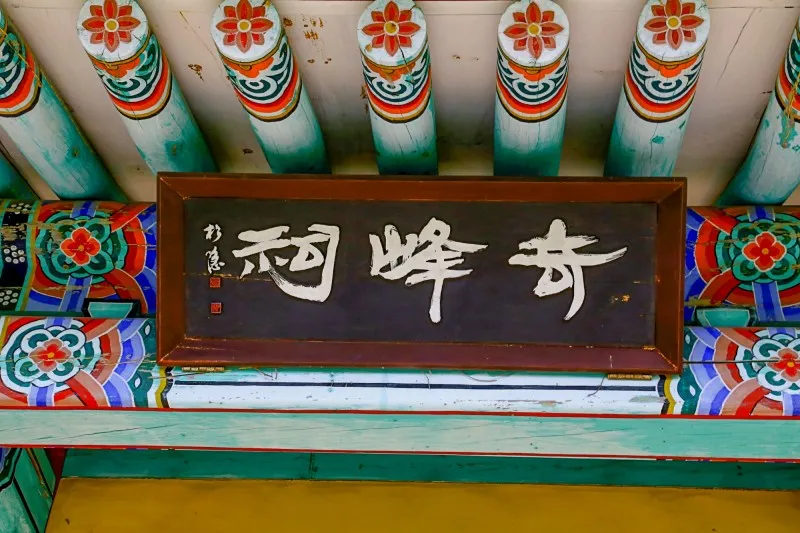 奇峰祠
杉隱